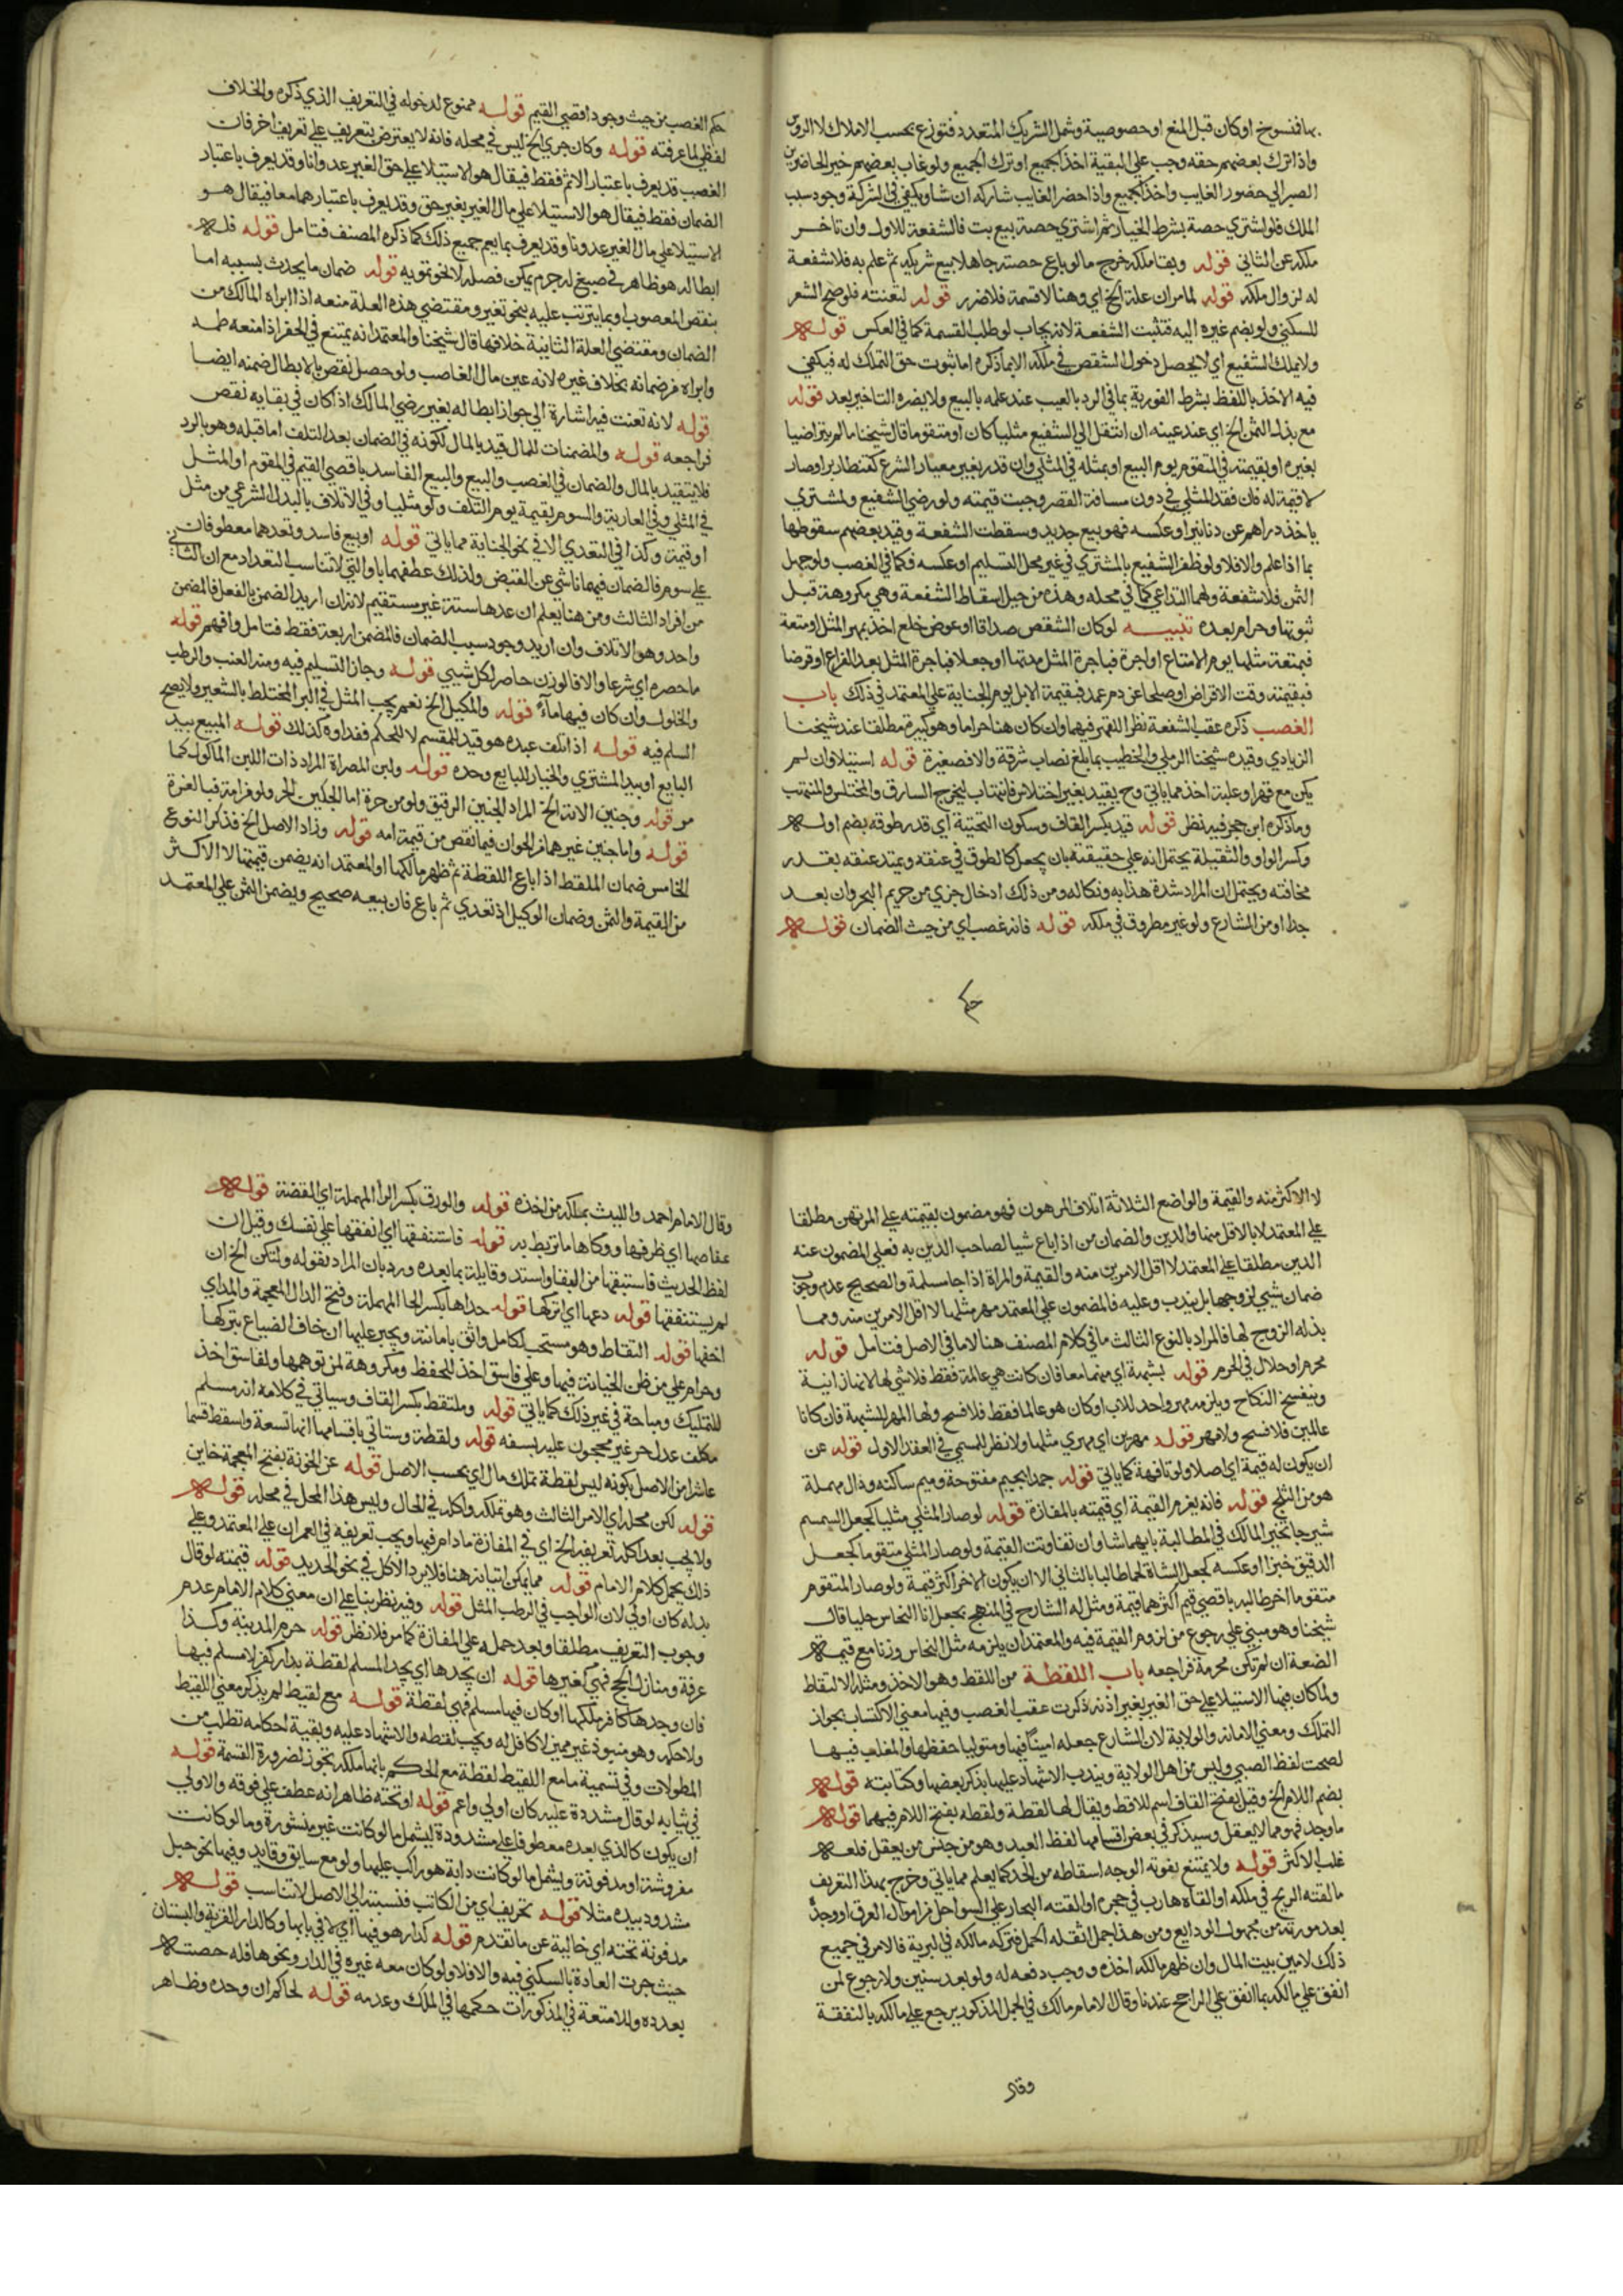 بها فنسوخ او كان قبل المنع او حصوصية وشمل الشريك المتعدد فتوزع بحسب الاملاك لا الروس
واذا ترك بعضهم حقه وجب علي البقية اخذ الجميع او ترك الجميع ولو غاب بعضهم خير الحاضر بين
الصبر الي حضور الغايب واخذ الجميع واذا حضر الغايب شاركه ان شا ويكفي في الشركة وجود سبب
الملك فلو اشتري حصة بشرط الخيار ثم اشتري حصة ببيع بت فالشفعة للاول وان تاخر
ملكه عن الثاني قوله وبقا ملكه خرج مالو باع حصته جاهلا ببيع شريكه ثم علم به فلا شفعة
له لزوال ملكه قوله لما مر ان علة الخ اي وهنا لا قسمة فلا ضرر قوله لتعنته فلو صح الشعر
للسكني ولو بضم غيره اليه فتثبت الشفعة لانه يجاب لو طلب القسمة كما في العكس قوله
ولا يملك الشفيع اي لا يحصل دخول الشقص في ملكه الا بما ذكره اما ثبوت حق التملك له فيكفي
فيه الاخذ باللفظ بشرط الفورية بما في الرد بالعيب عند علمه بالبيع ولا يضره التاخير بعد قوله
مع بذل الثمن الخ اي عند عينه ان انتقل الي الشفيع مثليا كان او متقوما قال شيخنا ما لم يتراضيا
بغيره او بقيمته في المتقوم يوم البيع او بمثله في المثلي وان قدر بغير معيار الشرع كقنطار بر او صار
لا قيمة له فان فقد المثلي في دون مسافة القصر وجبت قيمته ولو رضي الشفيع والمشتري
ياخذ دراهم عن دنانير او عكسه فهو بيع جديد وسقطت الشفعة وقيد بعضهم سقوطها
بما اذا علم والا فلا ولو ظفر الشفيع بالمشتري في غير محل التسليم او عكسه فكما في الغصب ولو جهل
الثمن فلا شفعة ولهما التداعي كما في محله وهذه من حيل اسقاط الشفعة وهي مكروهة قبل
ثبوتها وحرام بعده تنبيه لو كان الشقص صداقا او عوض خلع اخذ بمهر المثل او متعة
فبمتعة مثلها يوم الامتاع او اجرة فباجرة المثل مدتها او جعلا فباجرة المثل بعد الفراغ او قرضا
فبقيمته وقت الاقراض او صلحا عن دم عمد فبقيمة الابل يوم الجناية علي المعتمد في ذلك باب
الغصب ذكره عقب الشفعة نظر اللقهر فيهما وان كان هنا حراما وهو كبيرة مطلقا عند شيخنا
الزيادي وقيده شيخنا الرملي والخطيب بما بلغ نصاب سرقة والا فصغيرة قوله استيلا وان لم
يكن مع قهر او غلبة اخذ مما ياتي وح يقيد بغير اختلاس فانتهاب ليخرج السارق والمختلس والمنتهب
وما ذكره ابن حجر فيه نظر قوله قيد بكسر القاف وسكون التحتية اي قدر طوقه بضم اوله
وكسر الواو والثقيلة يحتمل انه علي حقيقته بان يجعل كالطوق في عنقه ويمتد عنقه بقدر
مخافته ويحتمل ان المراد شدة عذابه ونكاله ومن ذلك ادخال جزي من حريم البحر وان بعد
جدا او من الشارع ولو غير مطروق في ملكه قوله فانه غصب اي من حيث الضمان قوله
حكم
حكم الغصب من حيث وجود اقصي القيم قوله ممنوع لدخوله في التعريف الذي ذكره والخلاف
لفظي لما عرفته قوله وكان جري الخ ليس في محله فانه لا يعترض بتعريف علي تعريف اخر فان
الغصب قد يعرف باعتبار الاثم فقط فيقال هو الاستيلا علي حق الغير عدوانا وقد يعرف باعتبار
الضمان فقط فيقال هو الاستيلا علي مال الغير بغير حق وقد يعرف باعتبارهما معا فيقال هو
الاستيلا علي مال الغير عدوانا وقد يعرف بما يعم جميع ذلك كما ذكره المصنف فتامل قوله فله
ابطاله هو ظاهر في صبغ له جرم يمكن فصله لا نحو تمويه قوله ضمان ما يحدث بسببه اما
بنقص المغصوب او بما يترتب عليه بنحو تغير ومقتضي هذه العلة منعه اذا ابراه المالك من
الضمان ومقتضي العلة الثانية خلافها قال شيخنا والمعتمد انه يمتنع في الحفر اذا منعه طمه
وابراه من ضمانه بخلاف غيره لانه عين مال الغاصب ولو حصل نقص بالابطال ضمنه ايضا
قوله لانه تعنت فيه اشارة الي جواز ابطاله بغير رضي المالك اذا كان في بقايه نقص
فراجعه قوله والمضمنات للمال قيد بالمال لكونه في الضمان بعد التلف اما قبله وهو بالرد
فلا يتقيد بالمال والضمان في الغصب والبيع والبيع الفاسد باقصي القيم في المقوم او المثل
في المثلي وفي العارية والسوم بقيمة يوم التلف ولو مثليا وفي الاتلاف بالبدل الشرعي من مثل
او قيمة وكذا في التعدي الا في نحو الجناية مما ياتي قوله او بيع فاسد وتعدهما معطوفان
علي سوم فالضمان فيهما ناشي عن القبض ولذلك عطفهما باو التي لا تناسب التعداد مع ان الثاني
من افراد الثالث ومن هنا يعلم ان عدها ستة غير مستقيم لانه ان اريد الضمن بالفعل فالمضمن
واحد وهو الاتلاف وان اريد وجود سبب الضمان فالمضمن اربعة فقط فتامل وافهم قوله
ما حصره اي شرعا والا فالوزن حاصر لكل شيي قوله وجاز التسليم فيه ومنه العنب والرطب
والخلول وان كان فيها ماء قوله والمكيل الخ نعم يجب المثل في البر المختلط بالشعير ولا يصح
السلم فيه قوله اذا تلف عبده هو قيد للمقسم لا للحكم ففداوه كذلك قوله المبيع بيد
البايع او بيد المشتري والخيار للبايع وحده قوله ولبن المصراة المراد ذات اللبن الماكول كما
مر قوله وجنين الامة الخ المراد الجنين الرقيق ولو من حرة اما الجنين الحر ولو من امة فبالغرة
قوله واما جنين غيرهما من الحيوان فيما نقص من قيمة امه قوله وزاد الاصل الخ فذكر النوع
الخامس ضمان الملتقط اذا باع اللقطة ثم ظهر مالكها او المعتمد انه يضمن قيمتها لا الاكثر
من القيمة والثمن وضمان الوكيل اذ تعدي ثم باع فان بيعه صحيح ويضمن الثمن علي المعتمد
لا الاكثر منه والقيمة والواضع الثلاثة اتلاف المرهون فهو مضمون بقيمته علي المرتهن مطلقا
علي المعتمد لا بالاقل منها والدين والضمان من اذا باع شيا لصاحب الدين به فعلي المضمون عنه
الدين مطلقا علي المعتمد لا اقل الامرين منه والقيمة والمراة اذا جا مسلمة والصحيح عدم وجوب
ضمان شيي لزوجها بل يندب وعليه فالمضمون علي المعتمد مهر مثلها لا اقل الامرين منه ومما
بذله الزوج لها فالمراد بالنوع الثالث ما في كلام المصنف هنا لا ما في الاصل فتامل قوله
محرم او حلال في الحرم قوله بشبهة اي منهما معا فان كانت هي عالمة فقط فلا شي لها لانها زانية
وينفسخ النكاح ويلزمه مهر واحد للاب او كان هو عالما فقط فلا فسخ ولها المهر للشبهة فان كانا
عالمين فلا فسخ ولا مهر قوله مهرين اي مهري مثلها ولا نظر للمسمي في العقد الاول قوله عن
ان يكون له قيمة اي اصلا ولو تافهة كما ياتي قوله جمدا بجيم مفتوحة وميم ساكنة ودال مهملة
هو من الثلج قوله فانه يغرم القيمة اي قيمته بالمفازة قوله لو صار المثلي مثليا كجعل السمسم
شيرجا تخير المالك في المطالبة بايهما شا وان تفاوتت القيمة ولو صار المثلي متقوما كجعل
الدقيق خبزا او عكسه كجعل الشاة لحما طالبا بالثاني الا ان يكون الاخر اكثر قيمة ولو صار المتقوم
متقوما اخر طالبه باقصي قيم اكثرهما قيمة ومثل له الشارح في المنهج بجعل انا النحاس حليا قال
شيخنا وهو مبني علي رجوع من لزوم القيمة فيه والمعتمد ان يلزمه مثل النحاس وزنا مع قيمة
الصنعة ان لم تكن محرمة فراجعه باب اللقطة من اللقط وهو الاخذ ومثله الالتقاط
ولما كان فيها الاستيلا علي حق الغير بغير اذنه ذكرت عقب الغصب وفيها معني الاكتساب بجواز
التملك ومعني الامانة والولاية لان الشارع جعله امينا فيها ومتوليا حفظها والمغلب فيها
لصحت لفظ الصبي وليس من اهل الولاية ويندب الاشهاد عليها بذكر بعضها وكتابته قوله
بضم اللام الخ وقيل بفتح القاف اسم للاقط ويقال لها لقطة ولقطه بفتح اللام فيهما قوله
ما وجد فهو مما لا يعقل وسيذكر في بعض اقسامها لفظ العبد وهو من جنس من يعقل فلعله
غلب الاكثر قوله ولا يمتنع بفوته الوجه اسقاطه من الحد كما يعلم مما ياتي وخرج بهذا التعريف
ما القته الريح في ملكه او القاه هارب في حجره او القته البحار علي السواحل من اموال الغرق او وجد
بعد مورثه من مجهول الودايع ومن هذا جمل اثقله الحمل فتركه مالكه في البرية فالامر في جميع
ذلك لامين بيت المال وان ظهر مالكه اخذه ووجب دفعه له ولو بعد سنين ولا رجوع لمن
انفق علي مالكه بما انفق علي الراجح عندنا وقال الامام مالك في الجمل المذكور يرجع علي مالكه بالنفقة
وقال
وقال الامام احمد والليث يملكه من اخذه قوله والورق بكسر الرا المهملة اي الفضة قوله
عفاصها اي ظرفها ووكاها ما تربط به قوله فاستنفقها اي انفقها علي نفسك وقيل ان
لفظ الحديث فاستبقها من البقا واستد وقايلة بما بعده ورد بان المراد بقوله ولتكن الخ ان
لم يستنفقها قوله دعها اي اتركها قوله حذاها بكسر الحا المهملة وفتح الذال المعجمة والمد اي
اخفها قوله التقاط وهو مستحب لكامل واثق بامانته ويجبر عليها ان خاف الضياع بتركها
وحرام علي من ظن الخيانة فيها وعلي فاسق اخذ للتحفظ ومكروهة لمن توهمها ولفاسق اخذ
للتمليك ومباحة في غير ذلك كما ياتي قوله وملتقط بكسر القاف وسياتي في كلامه انه مسلم
مكلف عدل حر غير محجون عليه بسفه قوله ولقطة وستاتي باقسامها انها تسعة واسقط قسما
عاشرا من الاصل بكونه ليس لقطة تملك مال اي بحسب الاصل قوله عن الخونة بفتح المعجمة خاين
قوله لكن محله اي الامر الثالث وهو تملكه واكله في الحال وليس هذا المحل في محله قوله
ولا يجب بعد اكله تعريفه الخ اي في المفازة ما دام فيها ويجب تعريفه في العمران علي المعتمد وعلي
ذلك يحمل كلام الامام قوله مما يمكن اتيانه هنا فلا يرد الاكل في نحو الحديد قوله قيمته لو قال
بدله كان اولي لان الواجب في الرطب المثل قوله وفيه نظر بنا علي ان معني كلام الامام عدم
وجوب التعريف مطلقا وبعد حمله علي المفازة كما مر فلا نظر قوله حرم المدينة وكذا
عرفة ومنازل الحج فهي كغيرها قوله ان يجدها اي يجد المسلم لقطة بدار كفر لا مسلم فيها
فان وجدها كافر ملكها او كان فيها مسلم فهي لقطة قوله مع لقيط لم يذكر معني اللقيط
ولا حكمه وهو منبوذ غير مميز لا كافل له ويجب لقطه والاشهاد عليه وبقية احكامه تطلب من
المطولات وفي تسمية ما مع اللقيط لقطة مع الحكم بانها ملكه تجوز لضرورة القسمة قوله
في ثيابه لو قال مشدودة عليه كان اولي واعم قوله او تحته ظاهر انه عطف علي فوقه والاولي
ان يكون كالذي بعده معطوفا علي مشدودة ليشمل ما لو كانت غير منشورة وما لو كانت
مفروشة او مدفونة ويشمل ما لو كانت دابة هو راكب عليها ولو مع سايق وقايد وفيها نحو حبل
مشدود بيده مثلا قوله تحريف اي من الكاتب فنسبته الي الاصل لا تناسب قوله
مدفونة تحته اي خالية عن ما تقدم قوله كدار هو فيها اي لا في بابها وكالدار القرية والبستان
حيث جرت العادة بالسكني فيه والا فلا ولو كان معه غيره في الدار ونحوها فله حصته
بعدده وللامتعة في المذكورات حكمها في الملك وعدمه قوله لحاكم ان وحده وظاهر